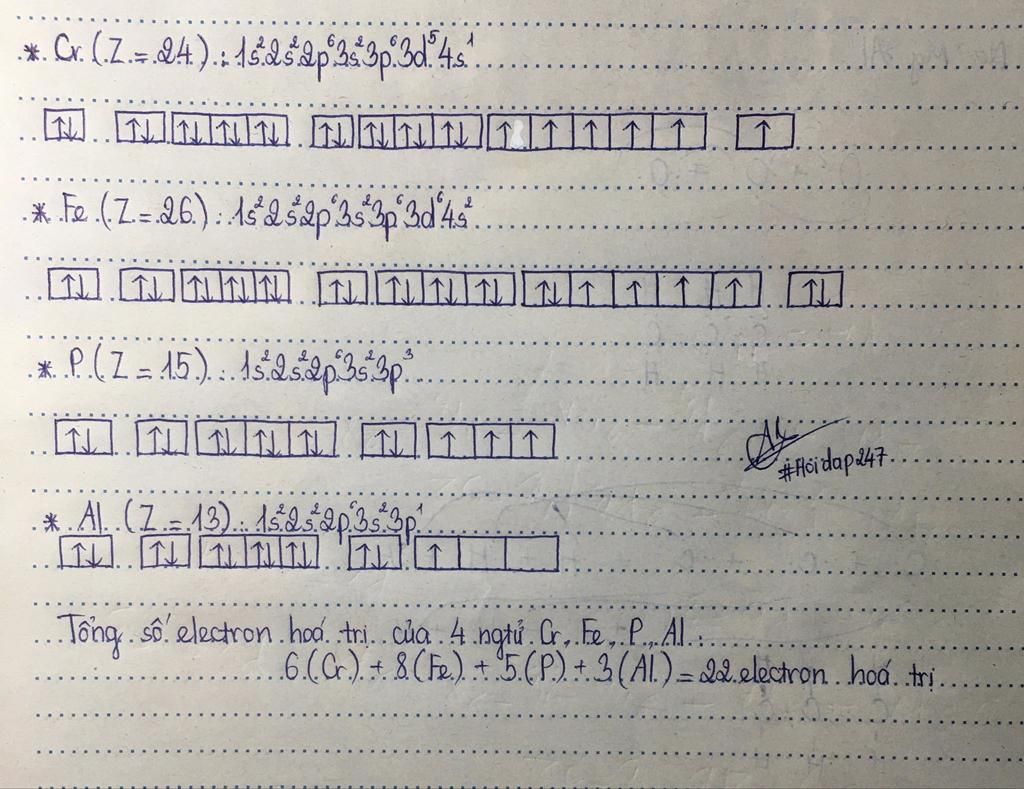 * Cr (Z = 24) : 1s²2s²2p⁶3s²3p⁶3d⁵4s¹
↑↓ ↑↓ ↑↓ ↑↓ ↑↓ ↑↓ ↑↓ ↑↓ ↑↓ ↑ ↑ ↑ ↑ ↑ ↑
* Fe (Z = 26) : 1s²2s²2p⁶3s²3p⁶3d⁶4s²
↑↓ ↑↓ ↑↓ ↑↓ ↑↓ ↑↓ ↑↓ ↑↓ ↑↓ ↑↓ ↑ ↑ ↑ ↑ ↑↓
* P (Z = 15) : 1s²2s²2p⁶3s²3p³
↑↓ ↑↓ ↑↓ ↑↓ ↑↓ ↑↓ ↑ ↑ ↑
#Hoidap247
* Al (Z = 13) : 1s²2s²2p⁶3s²3p¹
↑↓ ↑↓ ↑↓ ↑↓ ↑↓ ↑↓ ↑
Tổng số electron hoá trị của 4 ngtử Cr, Fe, P, Al :
6 (Cr) + 8 (Fe) + 5 (P) + 3 (Al) = 22 electron hoá trị